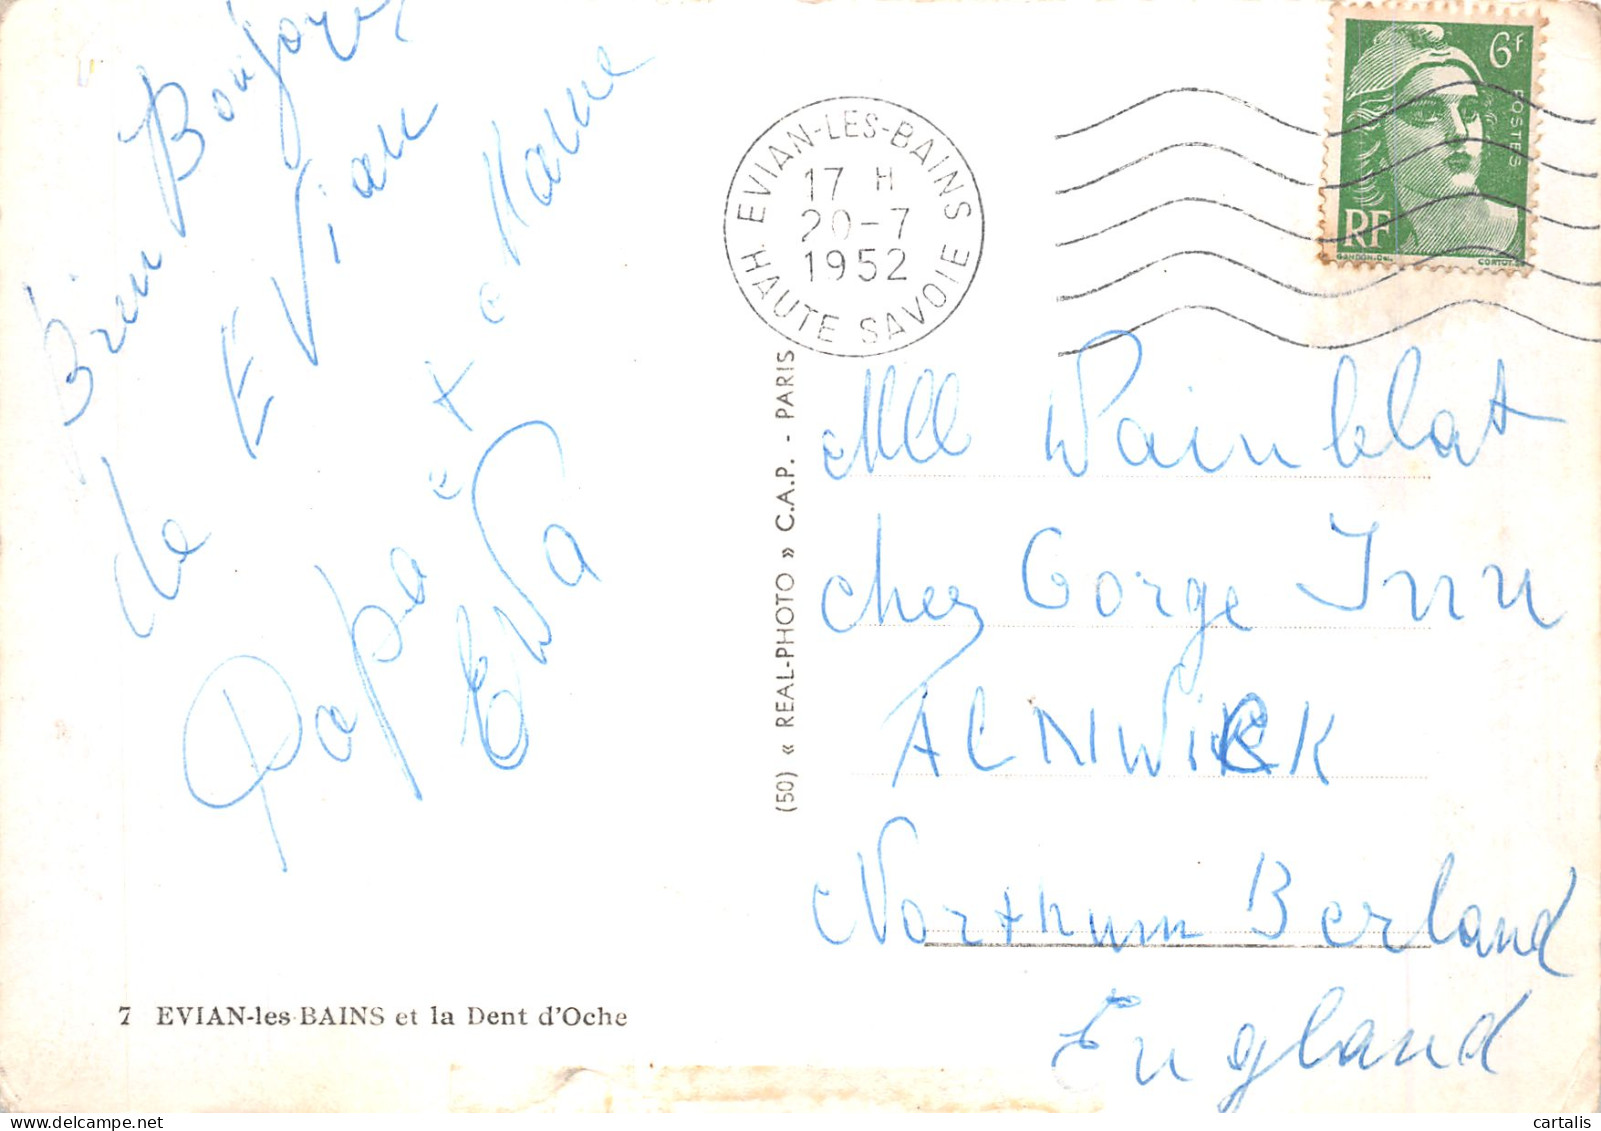 Bonjour
de EVian
Papa et Mame
EWa
EVIAN-LES-BAINS
17 H
20-7
1952
HAUTE SAVOIE
6F
POSTES
RF
GANDON
CORTOT
Mll Wainblat
chez Gorge Inn
ALNWiCK
NorthumBerland
England
(50) « REAL-PHOTO » C.A.P. - PARIS
7 EVIAN-les-BAINS et la Dent d'Oche
cartalis